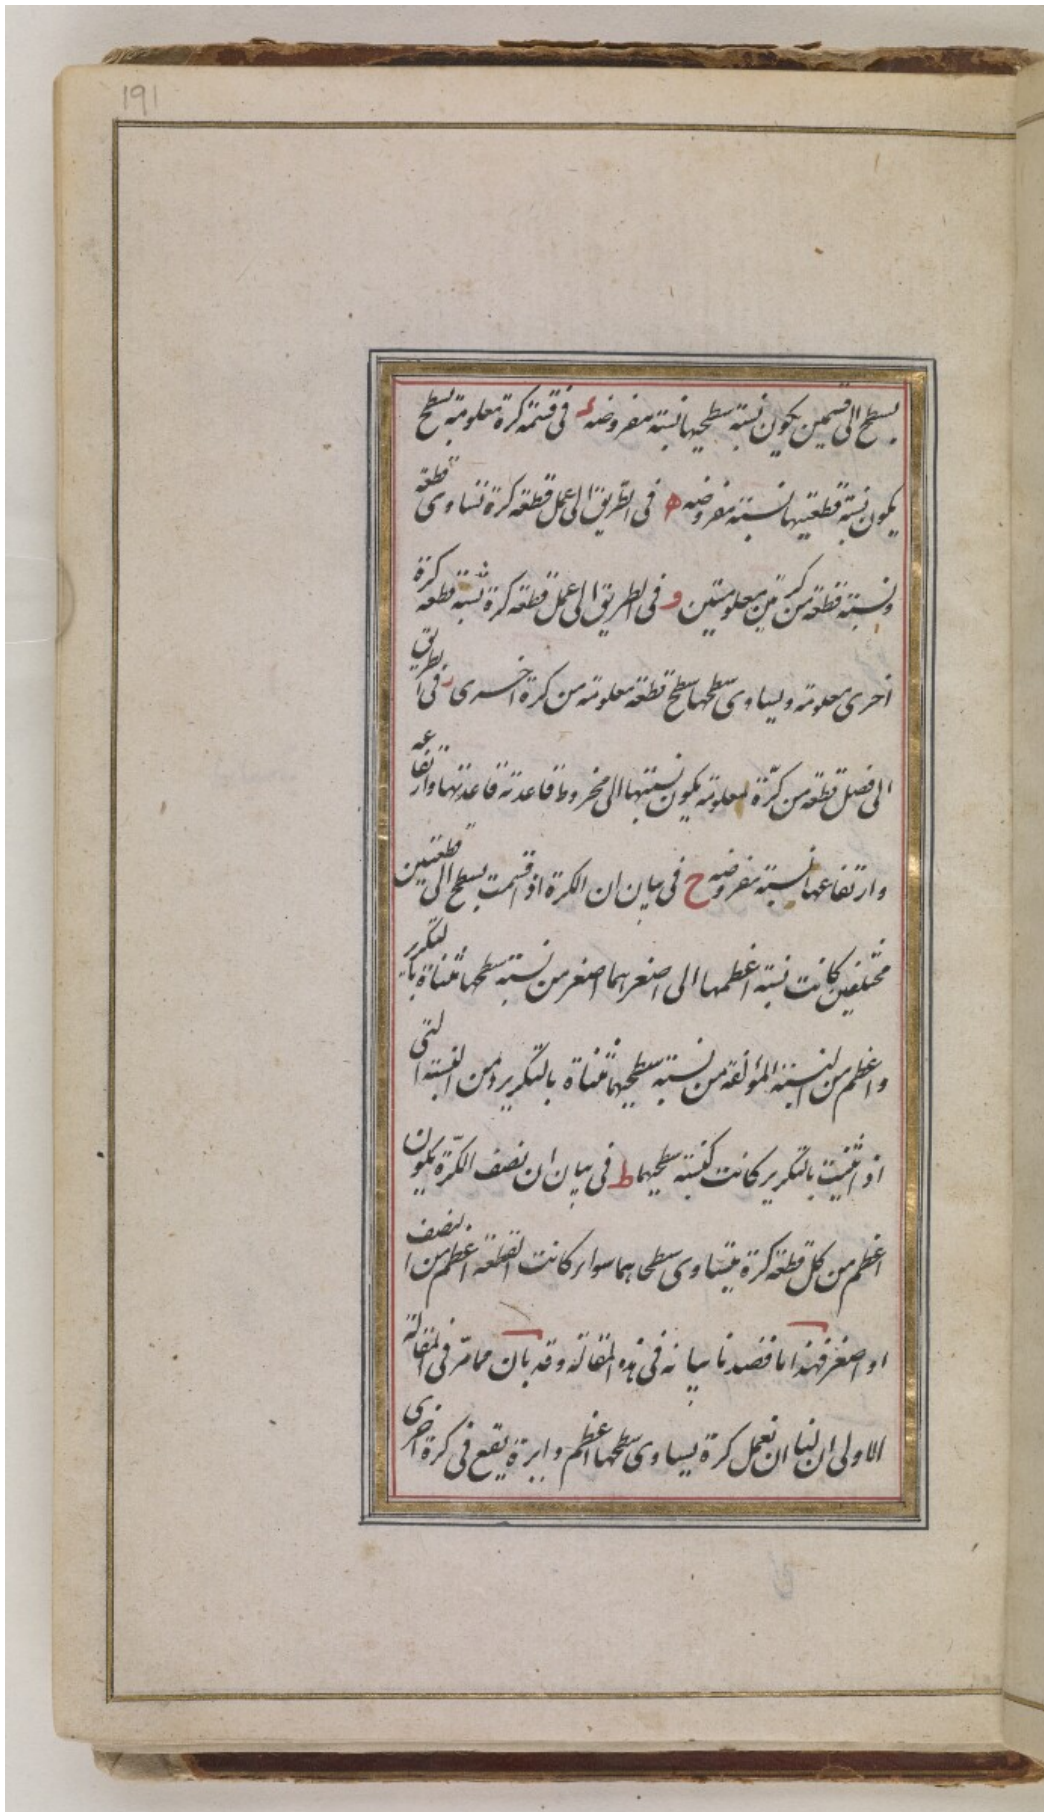 191
بسطح الى قسمين يكون نسبة سطحيها نسبة مفروضه د فى قسمة كرة معلومة بسطح
يكون نسبة قطعتيها نسبة مفروضه ه فى الطريق الى عمل قطعه كرة تساوى قطعه
ونسبة قطعة من كرتين معلومتين و فى الطريق الى عمل قطعه كرة نسبة قطعه كرة
اخرى معلومة ويساوى سطحها سطح قطعه معلومة من كرة اخرى ز فى الطريق
الى فصل قطعه من كرّة معلومة يكون نسبتها الى مخروط قاعدته قاعدتها وارتفاعه
وارتفاعها نسبة مفروضه ح فى بيان ان الكرة اذا قسمت بسطح الى قطعتين
مختلفين كانت نسبة اعظمها الى اصغرهما اصغر من نسبة سطحها مثناة بالتكرير
واعظم من النسبة المؤلفة من نسبة سطحيهما مثناة بالتكرير ومن النسبة التى
اذا ثنيت بالتكرير كانت كنسبة سطحيهما ط فى بيان ان نصف الكرّة يكون
اعظم من كل قطعه كرة يتساوى سطحاهما سواء كانت القطعة اعظم من النصف
او اصغر فهذا ما قصدنا بيانه فى هذه المقالة وقد بان مما مرّ فى المقالة
الاولى ان لنا ان نعمل كرة يساوى سطحها اعظم دايرة يقع فى كرة اخرى